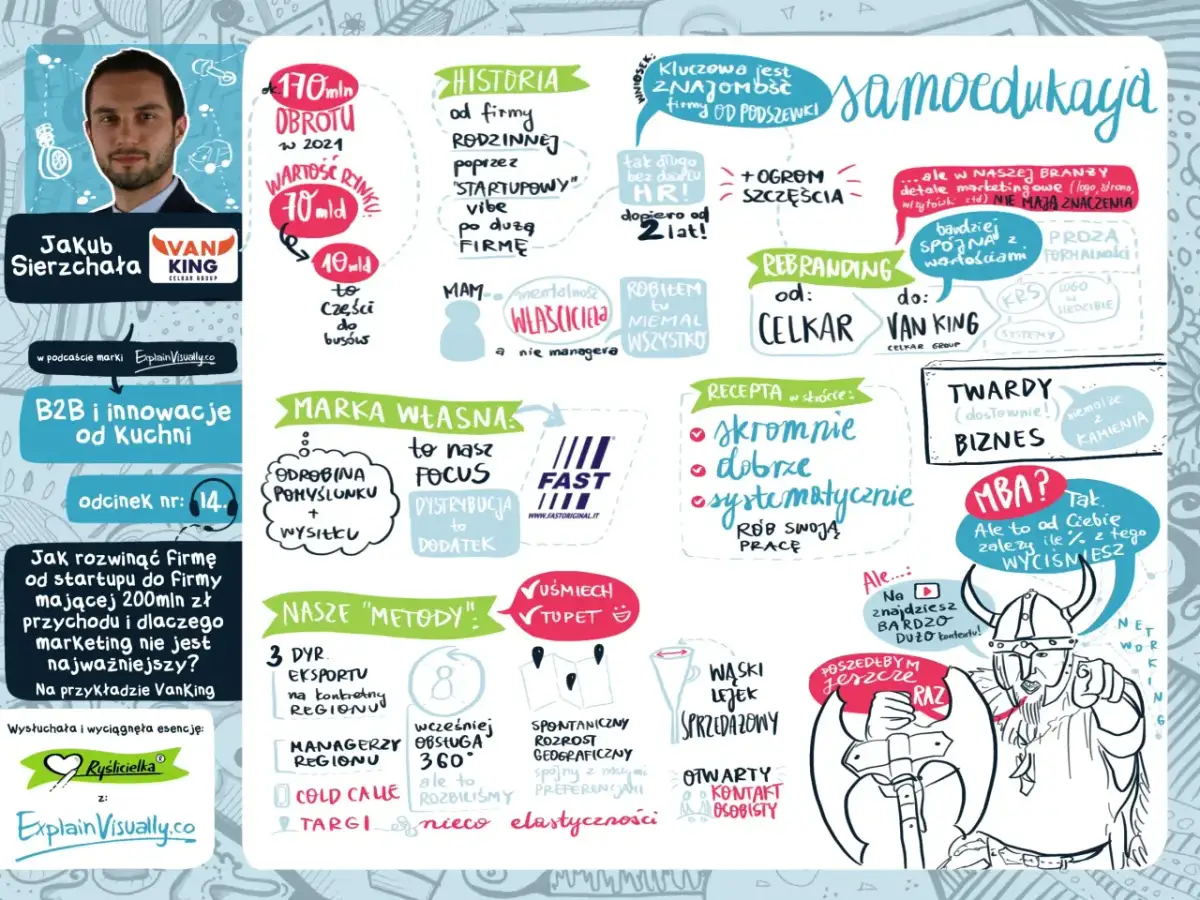 Jakub
Sierzchała
VAN
KING
CELKAR GROUP
w podcaście marki ExplainVisually.co
B2B i innowacje
od Kuchni
odcinek nr: 14.
Jak rozwinąć firmę
od startupu do firmy
mającej 200mln zł
przychodu i dlaczego
marketing nie jest
najważniejszy?
Na przykładzie VanKing
Wysłuchała i wyciągnęła esencję:
Ryślicielka®
z:
ExplainVisually.co
ok. 170mln
OBROTU
w 2021
WARTOŚĆ RYNKU:
70 mld
10 mld
to
części
do
busów
HISTORIA
od firmy
RODZINNEJ
poprzez
"STARTUPOWY"
vibe
po dużą
FIRMĘ
WNIOSEK:
Kluczowa jest
ZNAJOMOŚĆ
firmy OD PODSZEWKI
samoedukacja
tak długo
bez działu
HR!
dopiero od
2 lat!
+ OGROM
SZCZĘŚCIA
...ale w NASZEJ BRANŻY
detale marketingowe (logo, strona,
wizytówki itd) NIE MAJĄ ZNACZENIA
bardziej
SPÓJNA z
wartościami
PROZA
FORMALNOŚCI
REBRANDING
od:
CELKAR
do:
VAN KING
CELKAR GROUP
KRS
LOGO
w
SIEDZIBIE
SYSTEMY
MAM
mentalność
WŁAŚCICIELA
a nie managera
ROBIŁEM
tu
NIEMAL
WSZYSTKO
MARKA WŁASNA:
ODROBINA
POMYŚLUNKU
+
WYSIŁKU
to nasz
FOCUS
DYSTRYBUCJA
to
DODATEK
FAST
WWW.FASTORIGINAL.IT
RECEPTA w skrócie:
skromnie
dobrze
systematycznie
RÓB SWOJĄ
PRACĘ
TWARDY
(dosłownie!)
BIZNES
niemalże
z
KAMIENIA
MBA?
Tak.
Ale to od Ciebie
zależy ile % z tego
WYCIŚNIESZ
Ale...:
Na
znajdziesz
BARDZO
DUŻO kontentu!
POSZEDŁBYM
jeszcze
RAZ
NETWORKING
NASZE "METODY":
UŚMIECH
TUPET
3 DYR.
EKSPORTU
na konkretny
REGIONU
MANAGERZY
REGIONU
COLD CALLE
TARGI
8
wcześniej
OBSŁUGA
360°
ale to
ROZBILIŚMY
SPONTANICZNY
ROZROST
GEOGRAFICZNY
spójny z naszymi
PREFERENCJAMI
nieco elastyczności
WĄSKI
LEJEK
SPRZEDAŻOWY
OTWARTY
KONTAKT
OSOBISTY